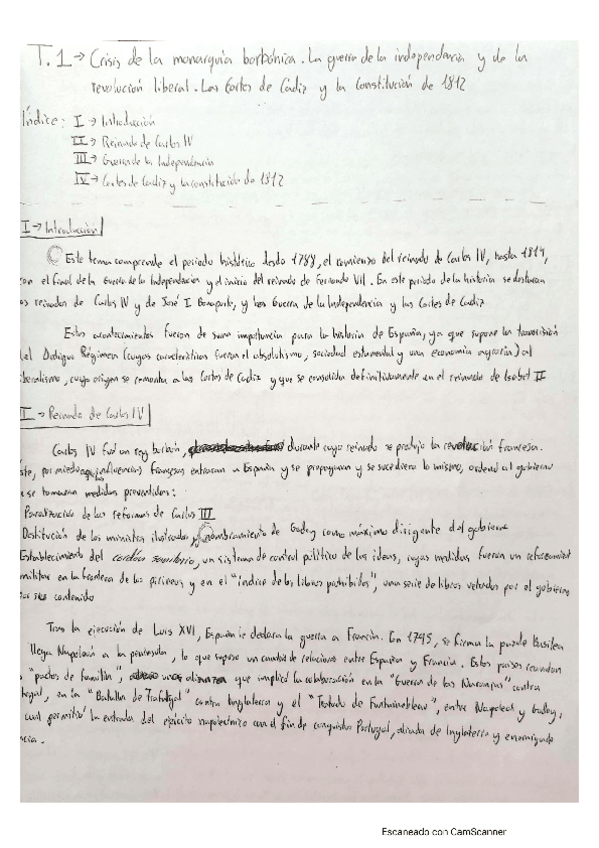 T.1→ Crisis de la monarquía borbónica. La guerra de la independencia y de la
revolución liberal. Las Cortes de Cádiz y la Constitución de 1812
Índice: I → Introducción
II → Reinado de Carlos IV
III → Guerra de la Independencia
IV → Cortes de Cádiz y la constitución de 1812
I → Introducción
Este tema comprende el periodo histórico desde 1788, el comienzo del reinado de Carlos IV, hasta 1814,
con el final de la Guerra de la Independencia y el inicio del reinado de Fernando VII. En este periodo de la historia se destacan
os reinados de Carlos IV y de José I Bonaparte, y las Guerra de la Independencia y las Cortes de Cádiz
Estos acontecimientos fueron de suma importancia para la historia de España, ya que supone la transición
el Antiguo Régimen (cuyas características fueron el absolutismo, sociedad estamental y una economía agraria) al
iberalismo, cuyo origen se remonta a las Cortes de Cádiz y que se consolida definitivamente en el reinado de Isabel II
I → Reinado de Carlos IV
Carlos IV fue un rey borbón, durante cuyo reinado se produjo la revolución francesa.
ste, por miedo a que influencias francesas entraran a España y se propagaran y sucediera lo mismo, ordenó al gobierno
se tomaran medidas preventivas:
Paralización de las reformas de Carlos III
Destitución de los ministros ilustrados y nombramiento de Godoy como máximo dirigente del gobierno
Establecimiento del cordón sanitario, un sistema de control político de las ideas, cuyas medidas fueron un reforzamient
militar en la frontera de los pirineos y en el "índice de los libros prohibidos", una serie de libros vetados por el gobierno
por su contenido
Tras la ejecución de Luis XVI, España le declara la guerra a Francia. En 1795, se firma la paz de Basilea
llega Napoleón a la península, lo que supuso un cambio de relaciones entre España y Francia. Estos países reanudan
"pactos de familia", unas alianzas que implicó la colaboración en la "Guerra de las Naranjas" contra
tugal, en la "Batalla de Trafalgar" contra Inglaterra y el "Tratado de Fontainebleau", entre Napoleón y Godoy,
cual permitió la entrada del ejército napoleónico con el fin de conquistar Portugal, aliada de Inglaterra y enemiga de
ncia.
Escaneado con CamScanner